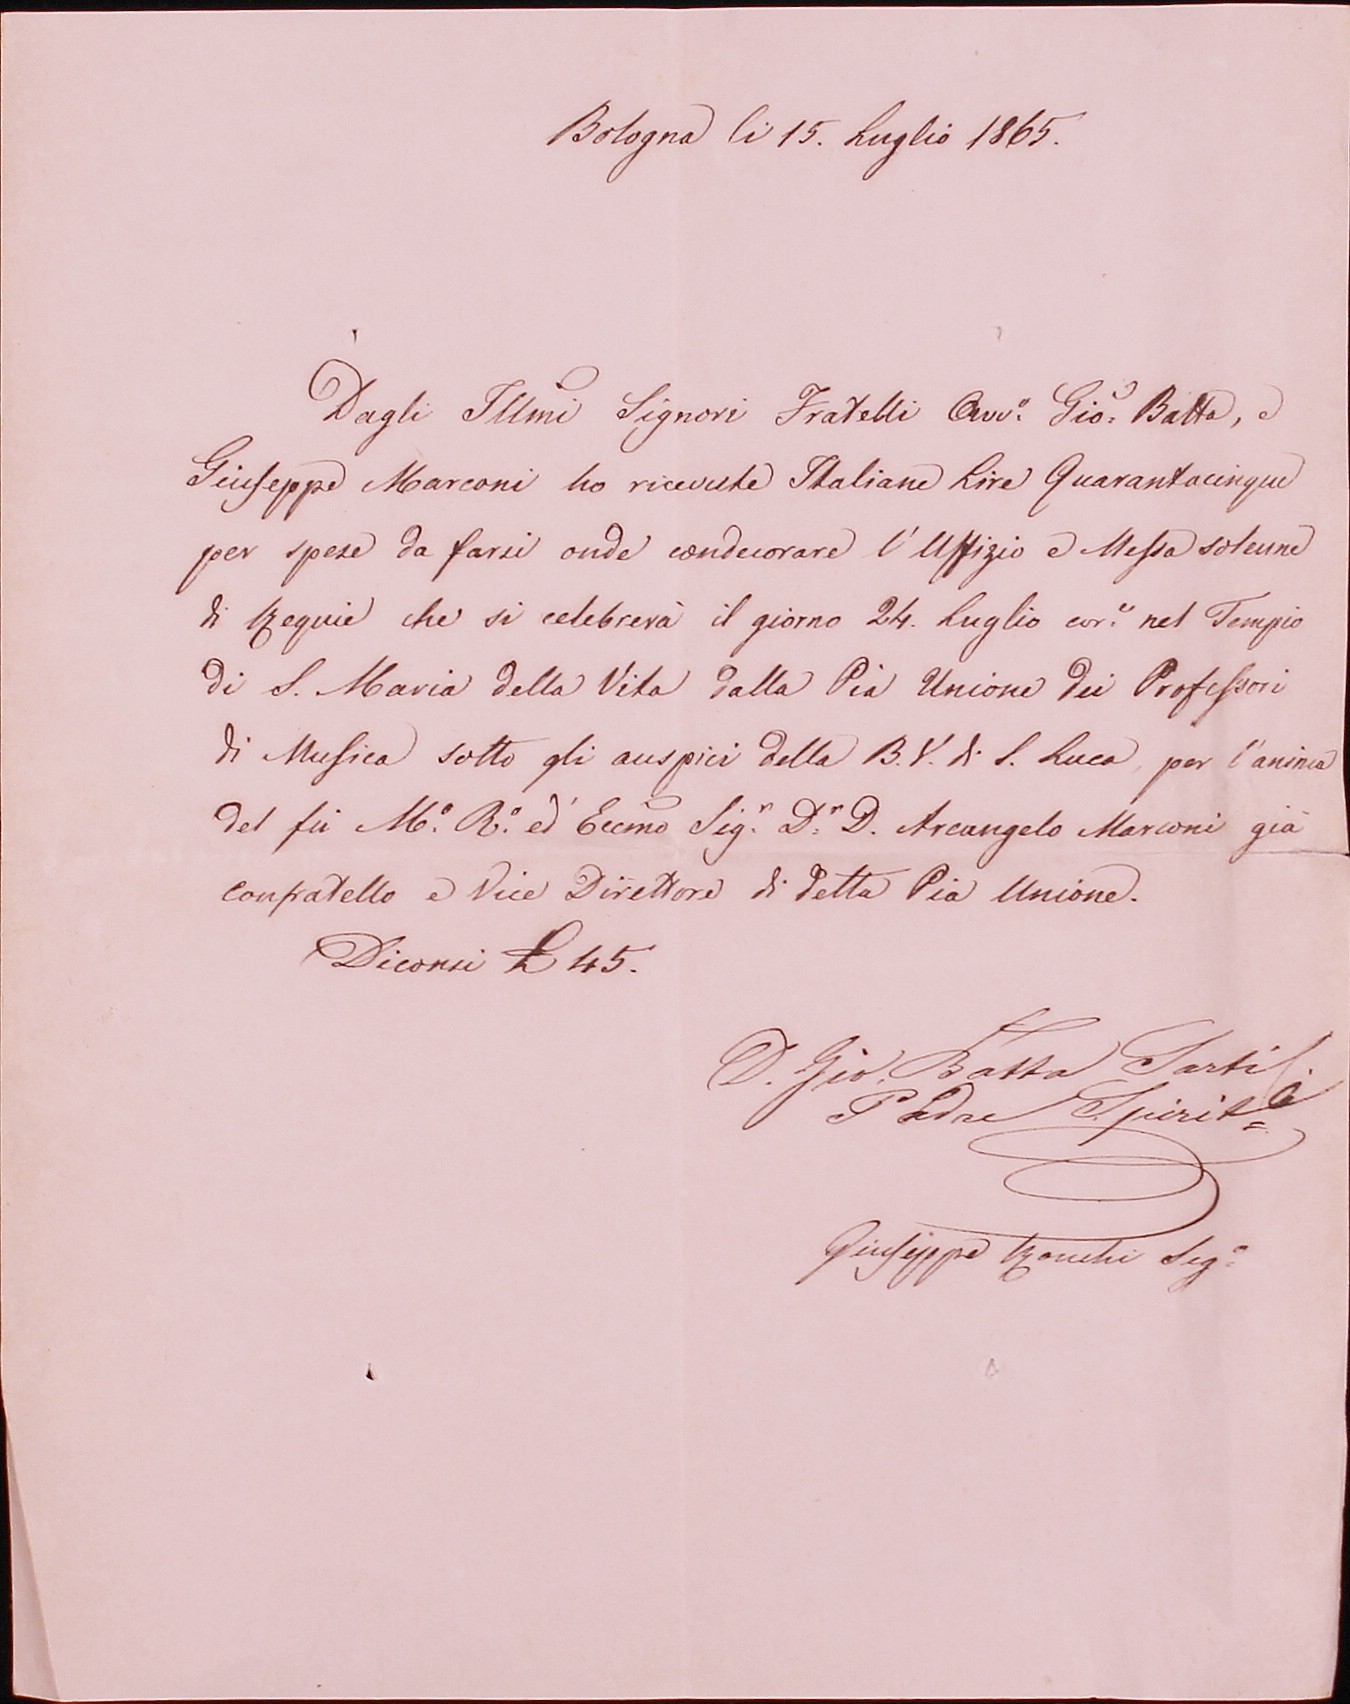 Bologna li 15. Luglio 1865.
Dagli Illmi Signori Fratelli Avvo. Gio: Batta, e
Giuseppe Marconi ho ricevute Italiane Lire Quarantacinque
per spese da farsi onde condecorare l'Uffizio e Messa solenne
di Requie che si celebrerà il giorno 24. Luglio cor.e nel Tempio
di S. Maria della Vita dalla Pia Unione dei Professori
di Musica sotto gli auspici della B.V. di S. Luca, per l'anima
del fù M.o R.o ed Eccmo Sig.r D.r D. Arcangelo Marconi già
confratello e Vice Direttore di detta Pia Unione.
Diconsi £ 45.
D. Gio. Batta Sarti
Padre Spirit.le
Giuseppe Ronchi Seg.o